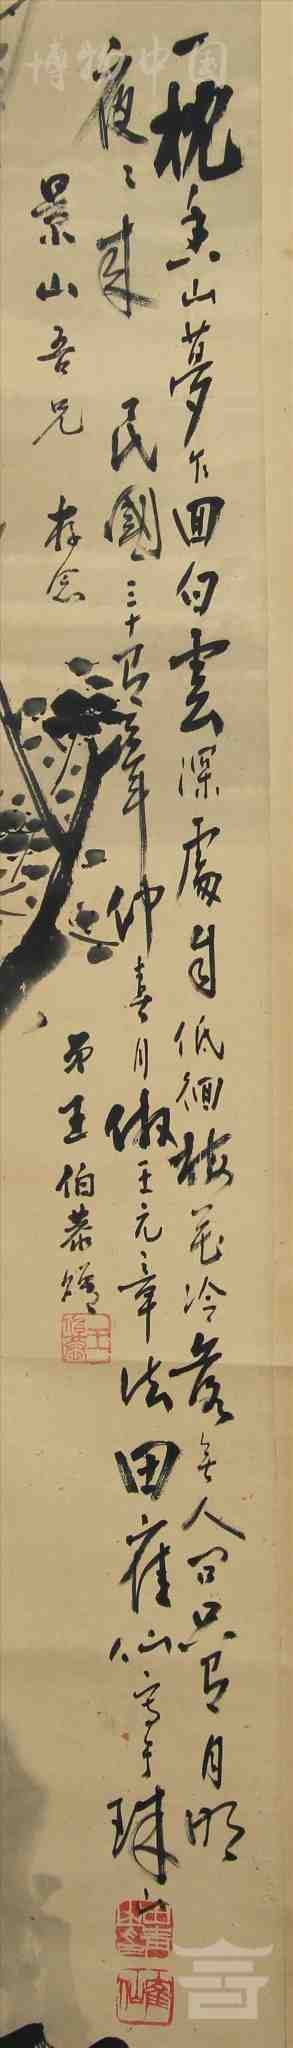 一枕青山夢乍回白雲深處自低徊梅花冷落無人問只有月明
夜夜來 民國三十有一年仲春月仿王元章法田崔仙寫于珠江
景山吾兄 存念
弟王伯恭贈
博物中国